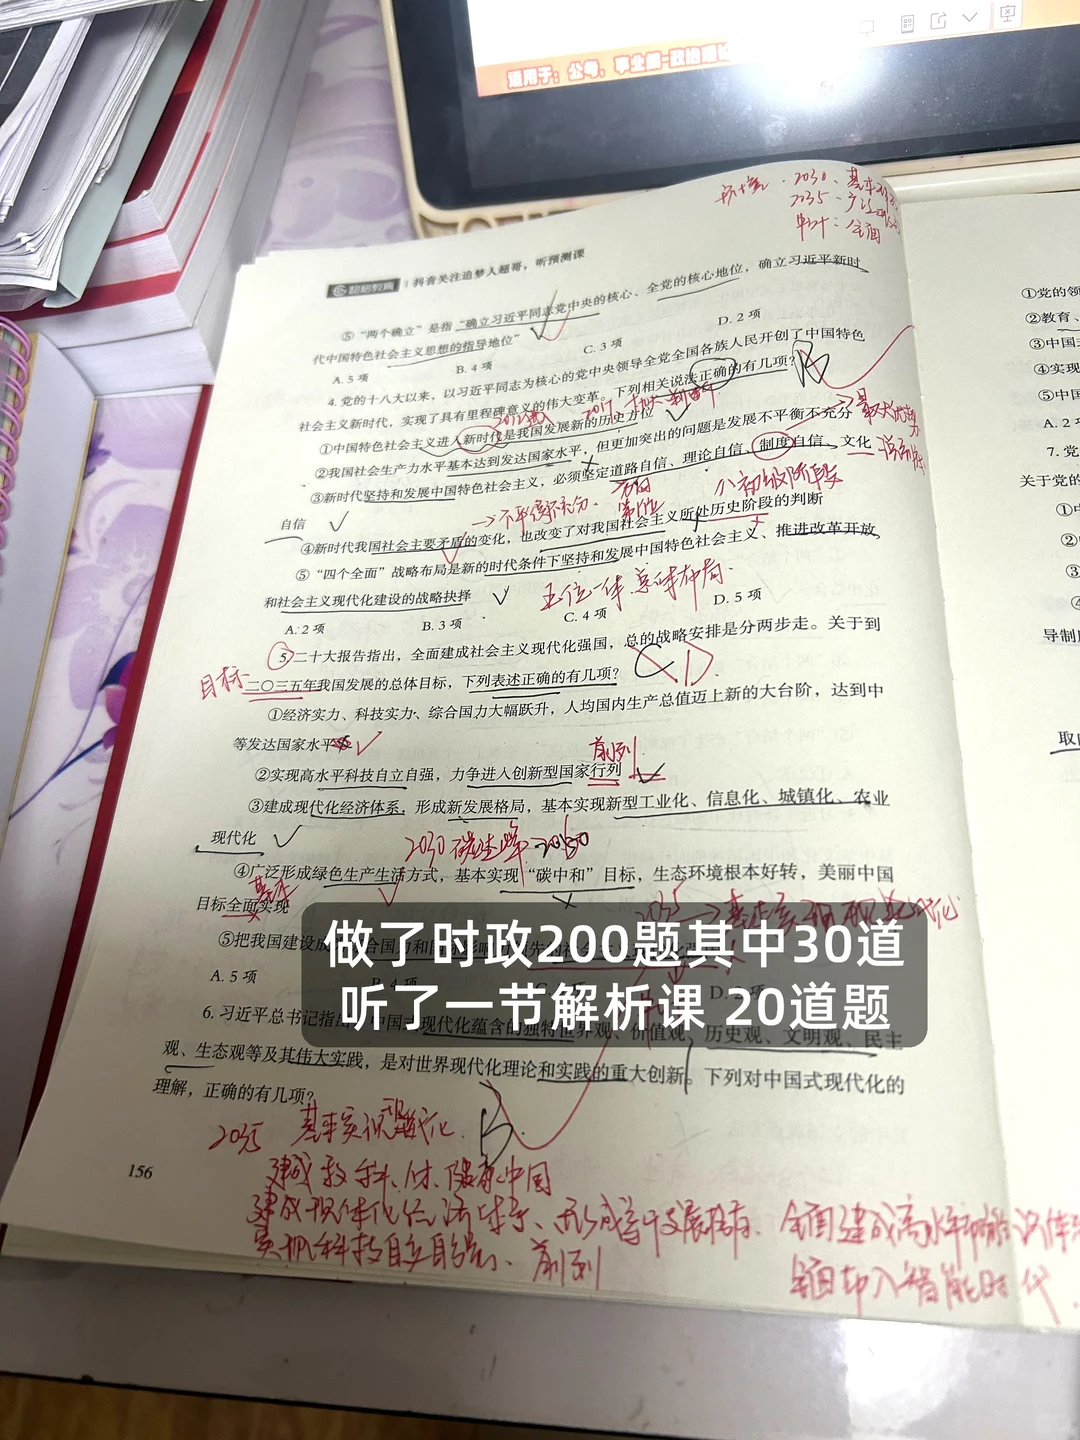 适用于：公考、事业编-政治理论
2030、基本
2035、
全面
超格教育 | 抖音关注追梦人超哥，听预测课
⑤“两个确立”是指“确立习近平同志党中央的核心、全党的核心地位，确立习近平新时
代中国特色社会主义思想的指导地位”
A. 5 项 B. 4 项 C. 3 项 D. 2 项
4. 党的十八大以来，以习近平同志为核心的党中央领导全党全国各族人民开创了中国特色
社会主义新时代，实现了具有里程碑意义的伟大变革。下列相关说法正确的有几项？
B
2017 十九大
①中国特色社会主义进入新时代是我国发展新的历史方位
②我国社会生产力水平基本达到发达国家水平，但更加突出的问题是发展不平衡不充分
③新时代坚持和发展中国特色社会主义，必须坚定道路自信、理论自信、制度自信、文化
自信
→不平衡不充分、
④新时代我国社会主要矛盾的变化，也改变了对我国社会主义所处历史阶段的判断
⑤“四个全面”战略布局是新的时代条件下坚持和发展中国特色社会主义、推进改革开放
和社会主义现代化建设的战略抉择
五位一体 总体布局
A. 2 项 B. 3 项 C. 4 项 D. 5 项
5 二十大报告指出，全面建成社会主义现代化强国，总的战略安排是分两步走。关于到
目标
二〇三五年我国发展的总体目标，下列表述正确的有几项？
C D
①经济实力、科技实力、综合国力大幅跃升，人均国内生产总值迈上新的大台阶，达到中
等发达国家水平
前列
②实现高水平科技自立自强，力争进入创新型国家行列
③建成现代化经济体系，形成新发展格局，基本实现新型工业化、信息化、城镇化、农业
现代化
2030 碳达峰
④广泛形成绿色生产生活方式，基本实现“碳中和”目标，生态环境根本好转，美丽中国
基本
目标全面实现
2035→基本实现现代化
⑤把我国建设成
A. 5 项 B. 4 项 D. 2 项
做了时政200题其中30道
听了一节解析课 20道题
6. 习近平总书记指出 中国式现代化蕴含的独特世界观、价值观、历史观、文明观、民主
观、生态观等及其伟大实践，是对世界现代化理论和实践的重大创新。下列对中国式现代化的
理解，正确的有几项？
B
2035 基本实现现代化
建成教、科、人、体、健康中国
建成现代化经济体系、形成新发展格局、
实现科技自立自强、前列
全面迈入智能时代
156
①党的领
②教育、
③中国
④实现
⑤中国
A. 2
7. 党
关于党的
①
②
③
④
导制
取